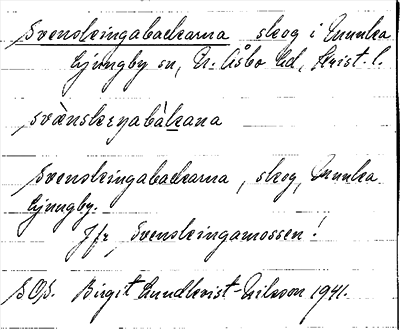 Svenskingabackarna skog i Munka
Ljungby sn, N. Åsbo hd, Krist. l.
svànskeŋabàkana
Svenskingabackarna, skog, Munka
Ljungby.
Jfr, Svenskingamossen!
SOS. Birgit Lundkvist-Nilsson 1941.